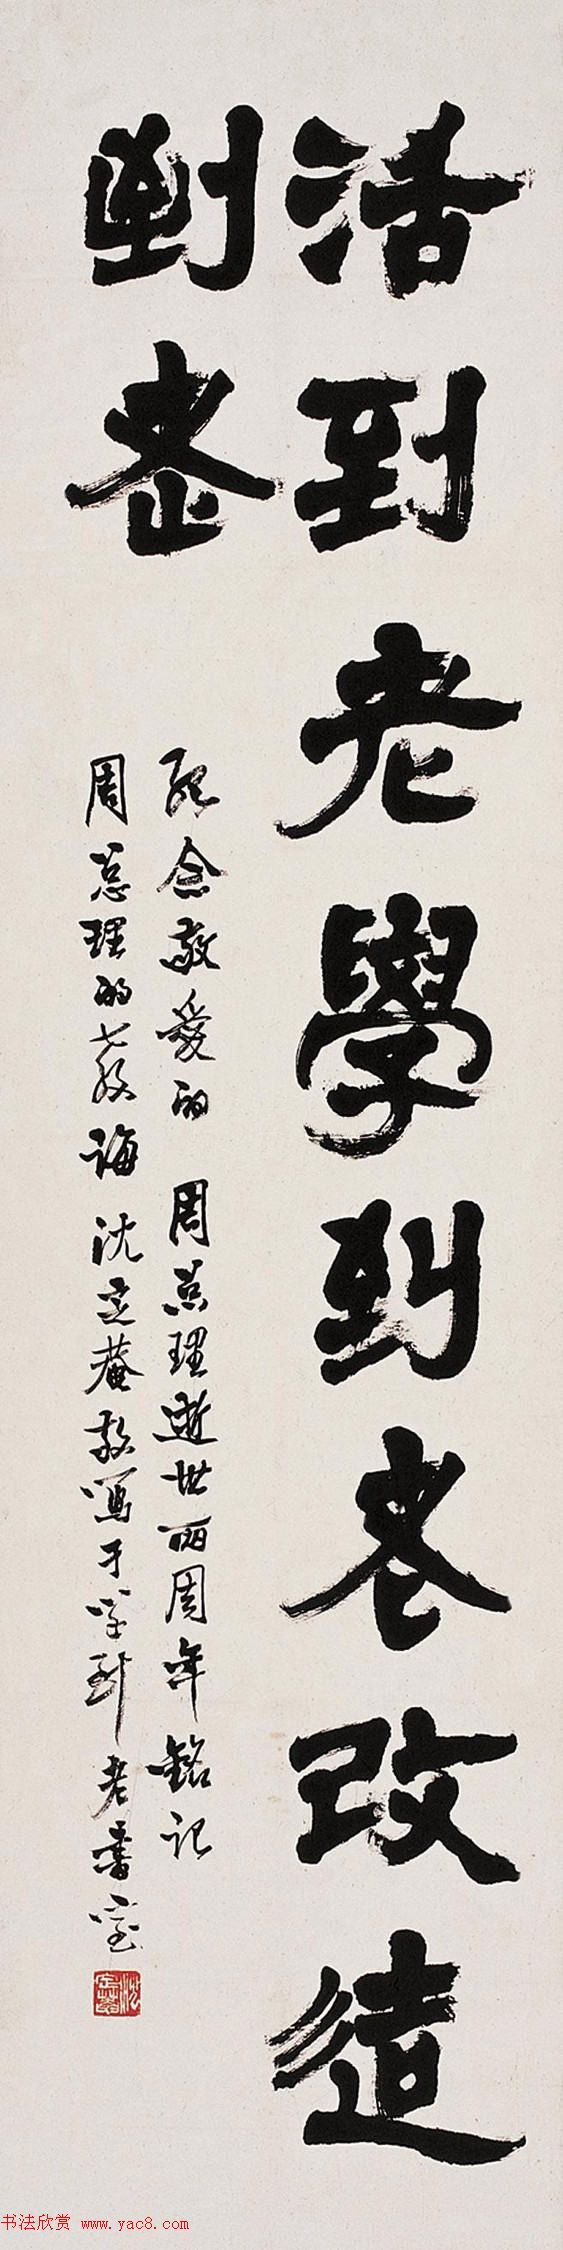 活到老學到老改造
到老
紀念敬愛的 周总理逝世两周年 銘记
周总理的教诲 沈定菴敬寫于学到老書室
沈定菴
书法欣赏 www.yac8.com